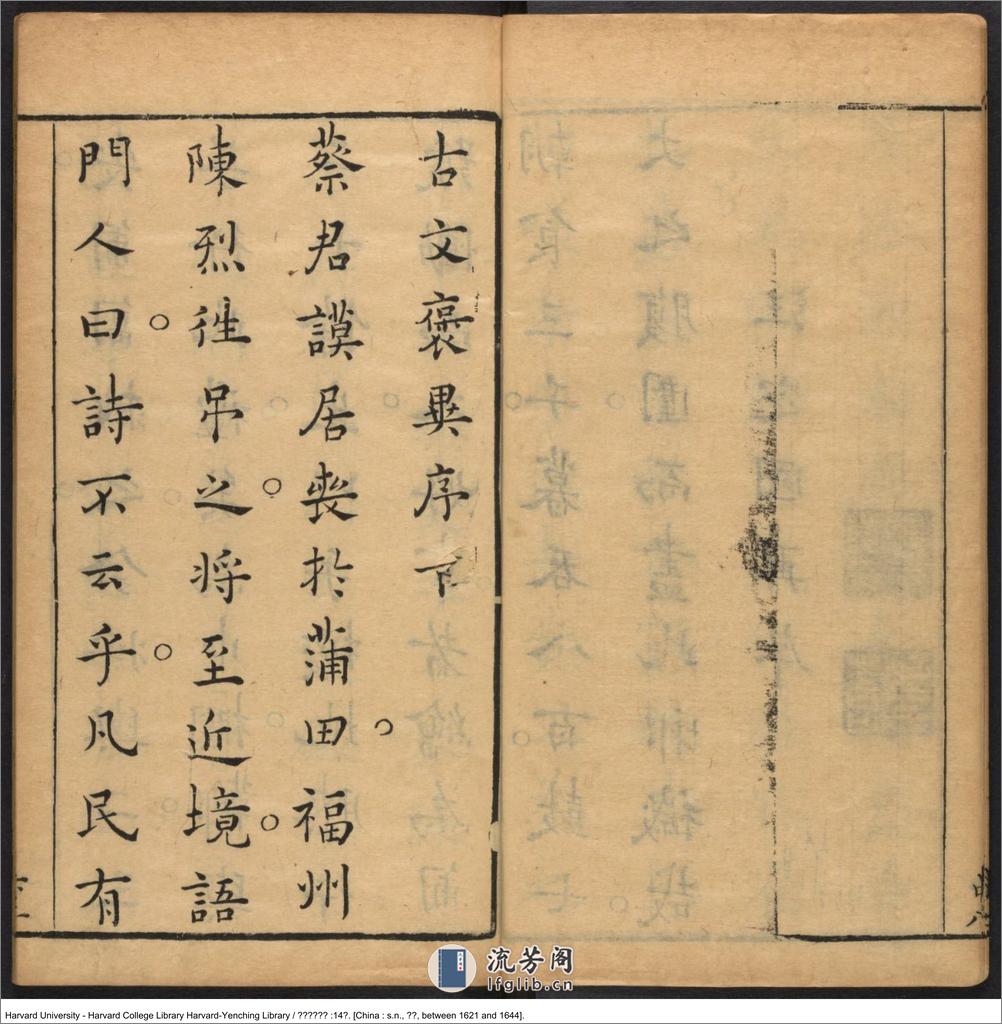 古文褒異序下
蔡君謨居喪於蒲田福州
陳烈徃吊之將至近境語
門人曰詩不云乎凡民有
流芳阁
lfglib.cn
Harvard University - Harvard College Library Harvard-Yenching Library / ?????? :14?. [China : s.n., ??, between 1621 and 1644].